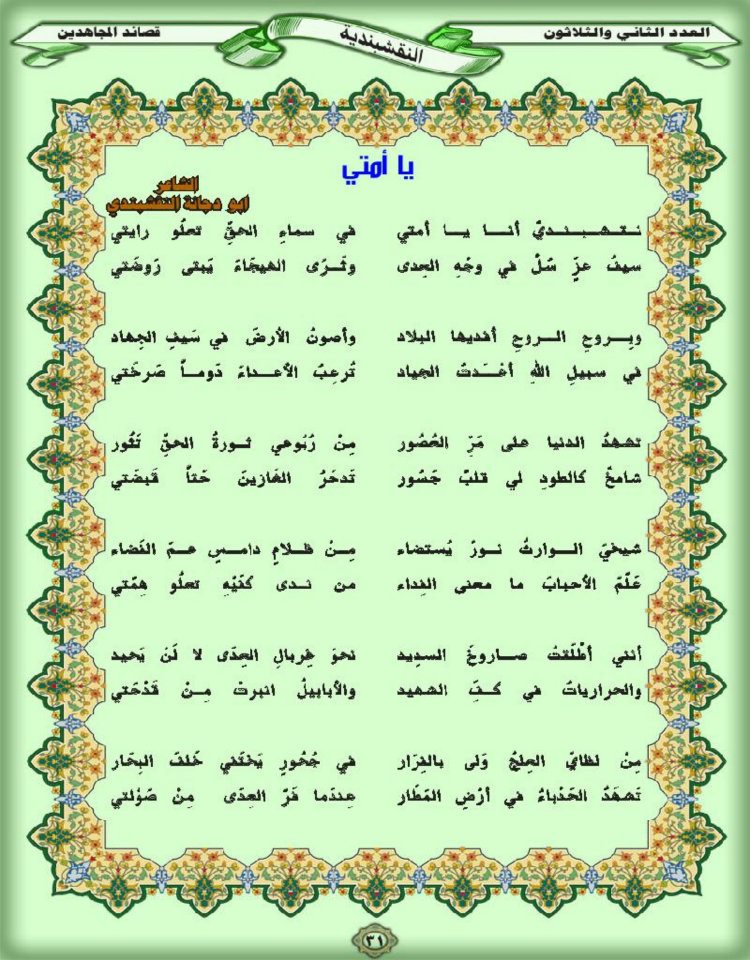 العدد الثاني والثلاثون
النقشبندية
قصائد المجاهدين
يا أمتي
الشاعر
ابو دجانة النقشبندي
نقشبنديٌ أنا يا أمتي في سماءِ الحقِّ تعلُو رايتي
سيفُ عزٍ سُلَّ في وجْهِ العِدى وثَرَى الهيجَاءَ يَبتى رَوضَتي
وبِروحِ الروحِ أفديها البلاد وأصونُ الأرضَ في سَيفِ الجِهاد
في سبيلِ اللهِ أعْدَدتُ الجياد تُرعِبُ الأعداءَ دَوماً صَرخَتي
تشهدُ الدنيا على مَرِّ العُصُور مِنْ رُبُوعي ثورةُ الحقِّ تَثُور
شامخٌ كالطودِ لي قلبٌ جَسُور تَدحَرُ الغازينَ حَتاً قَبضَتي
شيخيَ الوارثُ نورٌ يُستضاء مِنْ ظلامٍ دامسٍ عمّ الفَضاء
عَلّمَ الأحبابَ ما معنى الفِداء من ندى كفّيْهِ تعلُو هِمّتي
أنني أطْلَقتُ صاروخَ السديد نحوَ غِربالِ العِدَى لا لَن يَحيد
والحرارياتُ في كفِّ الشهيد والأبابيلُ انبرتْ مِنْ قَدْحَتي
مِنْ لظايَ العِلجُ وَلى بالفِرَار في جُحُورٍ يَختَفي خَلفَ البِحَار
تَشهَدُ الحَدْباءُ في أرْضِ المَطَار عِندَما فَرَّ العِدَى مِنْ صَوْلتي
٣١